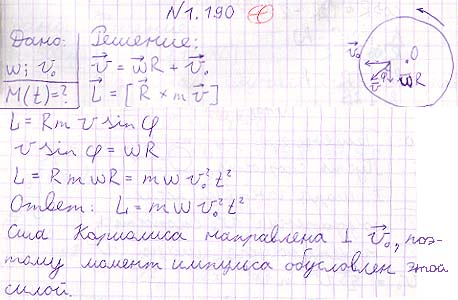 N 1.190 +
Дано: Решение:
w; v⃗₀ v⃗ = w⃗R + v⃗₀
M(t)=? L⃗ = [R⃗ × m v⃗]
v⃗₀ O
v⃗ φ w⃗R
L = Rm v sin φ
v sin φ = wR
L = R m w R = m w v₀² t²
Ответ: L = m w v₀² t²
Сила Кориолиса направлена ⊥ v⃗₀, поэ-
тому момент импульса обусловлен этой
силой.